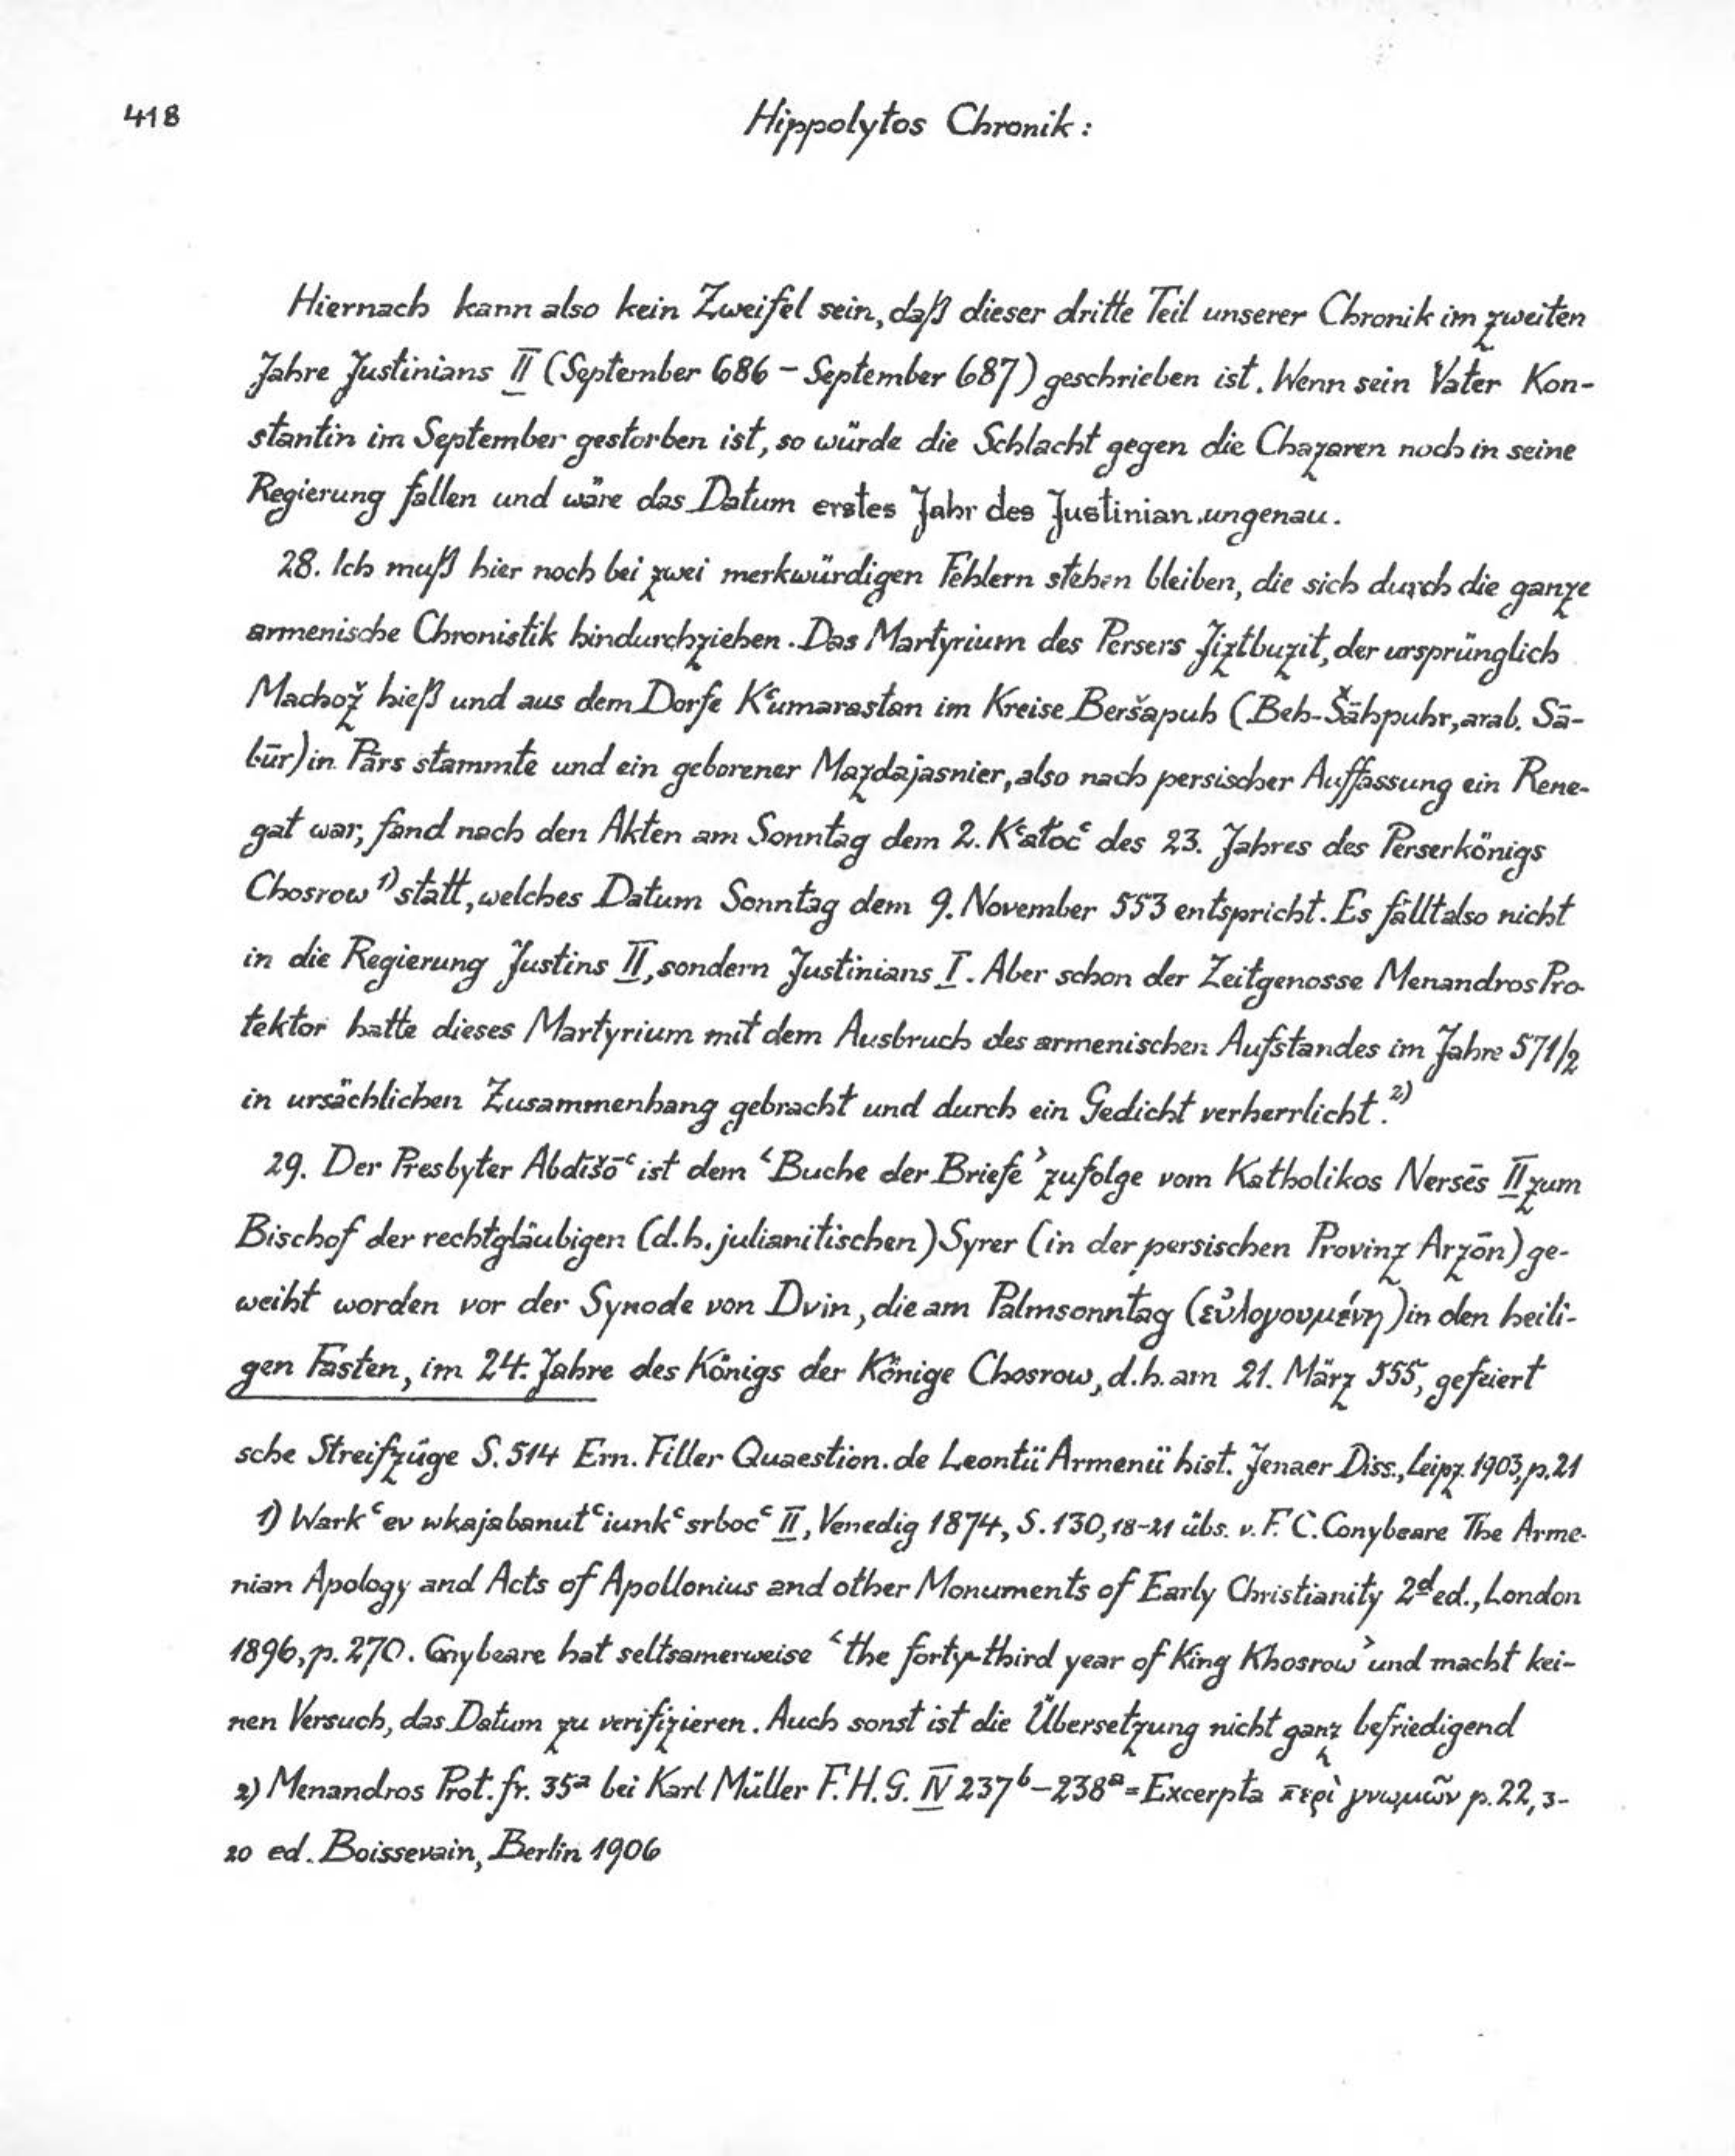 418
Hippolytos Chronik:
Hiernach kann also kein Zweifel sein, daß dieser dritte Teil unserer Chronik im zweiten
Jahre Justinians II (September 686 – September 687) geschrieben ist. Wenn sein Vater Kon-
stantin im September gestorben ist, so würde die Schlacht gegen die Chazaren noch in seine
Regierung fallen und wäre das Datum erstes Jahr des Justinian ungenau.
28. Ich muß hier noch bei zwei merkwürdigen Fehlern stehen bleiben, die sich durch die ganze
armenische Chronistik hindurchziehen. Das Martyrium des Persers Jiztbuzit, der ursprünglich
Machož hieß und aus dem Dorfe Kʿumarastan im Kreise Beršapuh (Beh-Šāhpuhr, arab. Sā-
būr) in Pārs stammte und ein geborener Mazdajasnier, also nach persischer Auffassung ein Rene-
gat war, fand nach den Akten am Sonntag dem 2. Kʿałocʿ des 23. Jahres des Perserkönigs
Chosrow 1) statt, welches Datum Sonntag dem 9. November 553 entspricht. Es fällt also nicht
in die Regierung Justins II, sondern Justinians I. Aber schon der Zeitgenosse Menandros Pro-
tektor hatte dieses Martyrium mit dem Ausbruch des armenischen Aufstandes im Jahre 571/2
in ursächlichen Zusammenhang gebracht und durch ein Gedicht verherrlicht. 2)
29. Der Presbyter Abdīšōʿ ist dem ‘Buche der Briefe’ zufolge vom Katholikos Nersēs II zum
Bischof der rechtgläubigen (d.h. julianitischen) Syrer (in der persischen Provinz Arzōn) ge-
weiht worden vor der Synode von Dvin, die am Palmsonntag (εὐλογουμένη) in den heili-
gen Fasten, im 24. Jahre des Königs der Könige Chosrow, d.h. am 21. März 555, gefeiert
sche Streifzüge S. 514 Ern. Filler Quaestion. de Leontii Armenii hist. Jenaer Diss., Leipz. 1903, p. 21
1) Warkʿ ev wkajabanutʿiunkʿ srbocʿ II, Venedig 1874, S. 130,18-21 übs. v. F. C. Conybeare The Arme-
nian Apology and Acts of Apollonius and other Monuments of Early Christianity 2d ed., London
1896, p. 270. Conybeare hat seltsamerweise ‘the forty-third year of King Khosrow’ und macht kei-
nen Versuch, das Datum zu verifizieren. Auch sonst ist die Übersetzung nicht ganz befriedigend
2) Menandros Prot. fr. 35a bei Karl Müller F.H.G. IV 237b–238a = Excerpta περὶ γνωμῶν p. 22, 3-
20 ed. Boissevain, Berlin 1906